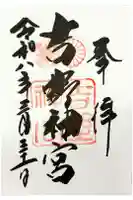 奉拝
吉野神宮
令和八年三月三十一日